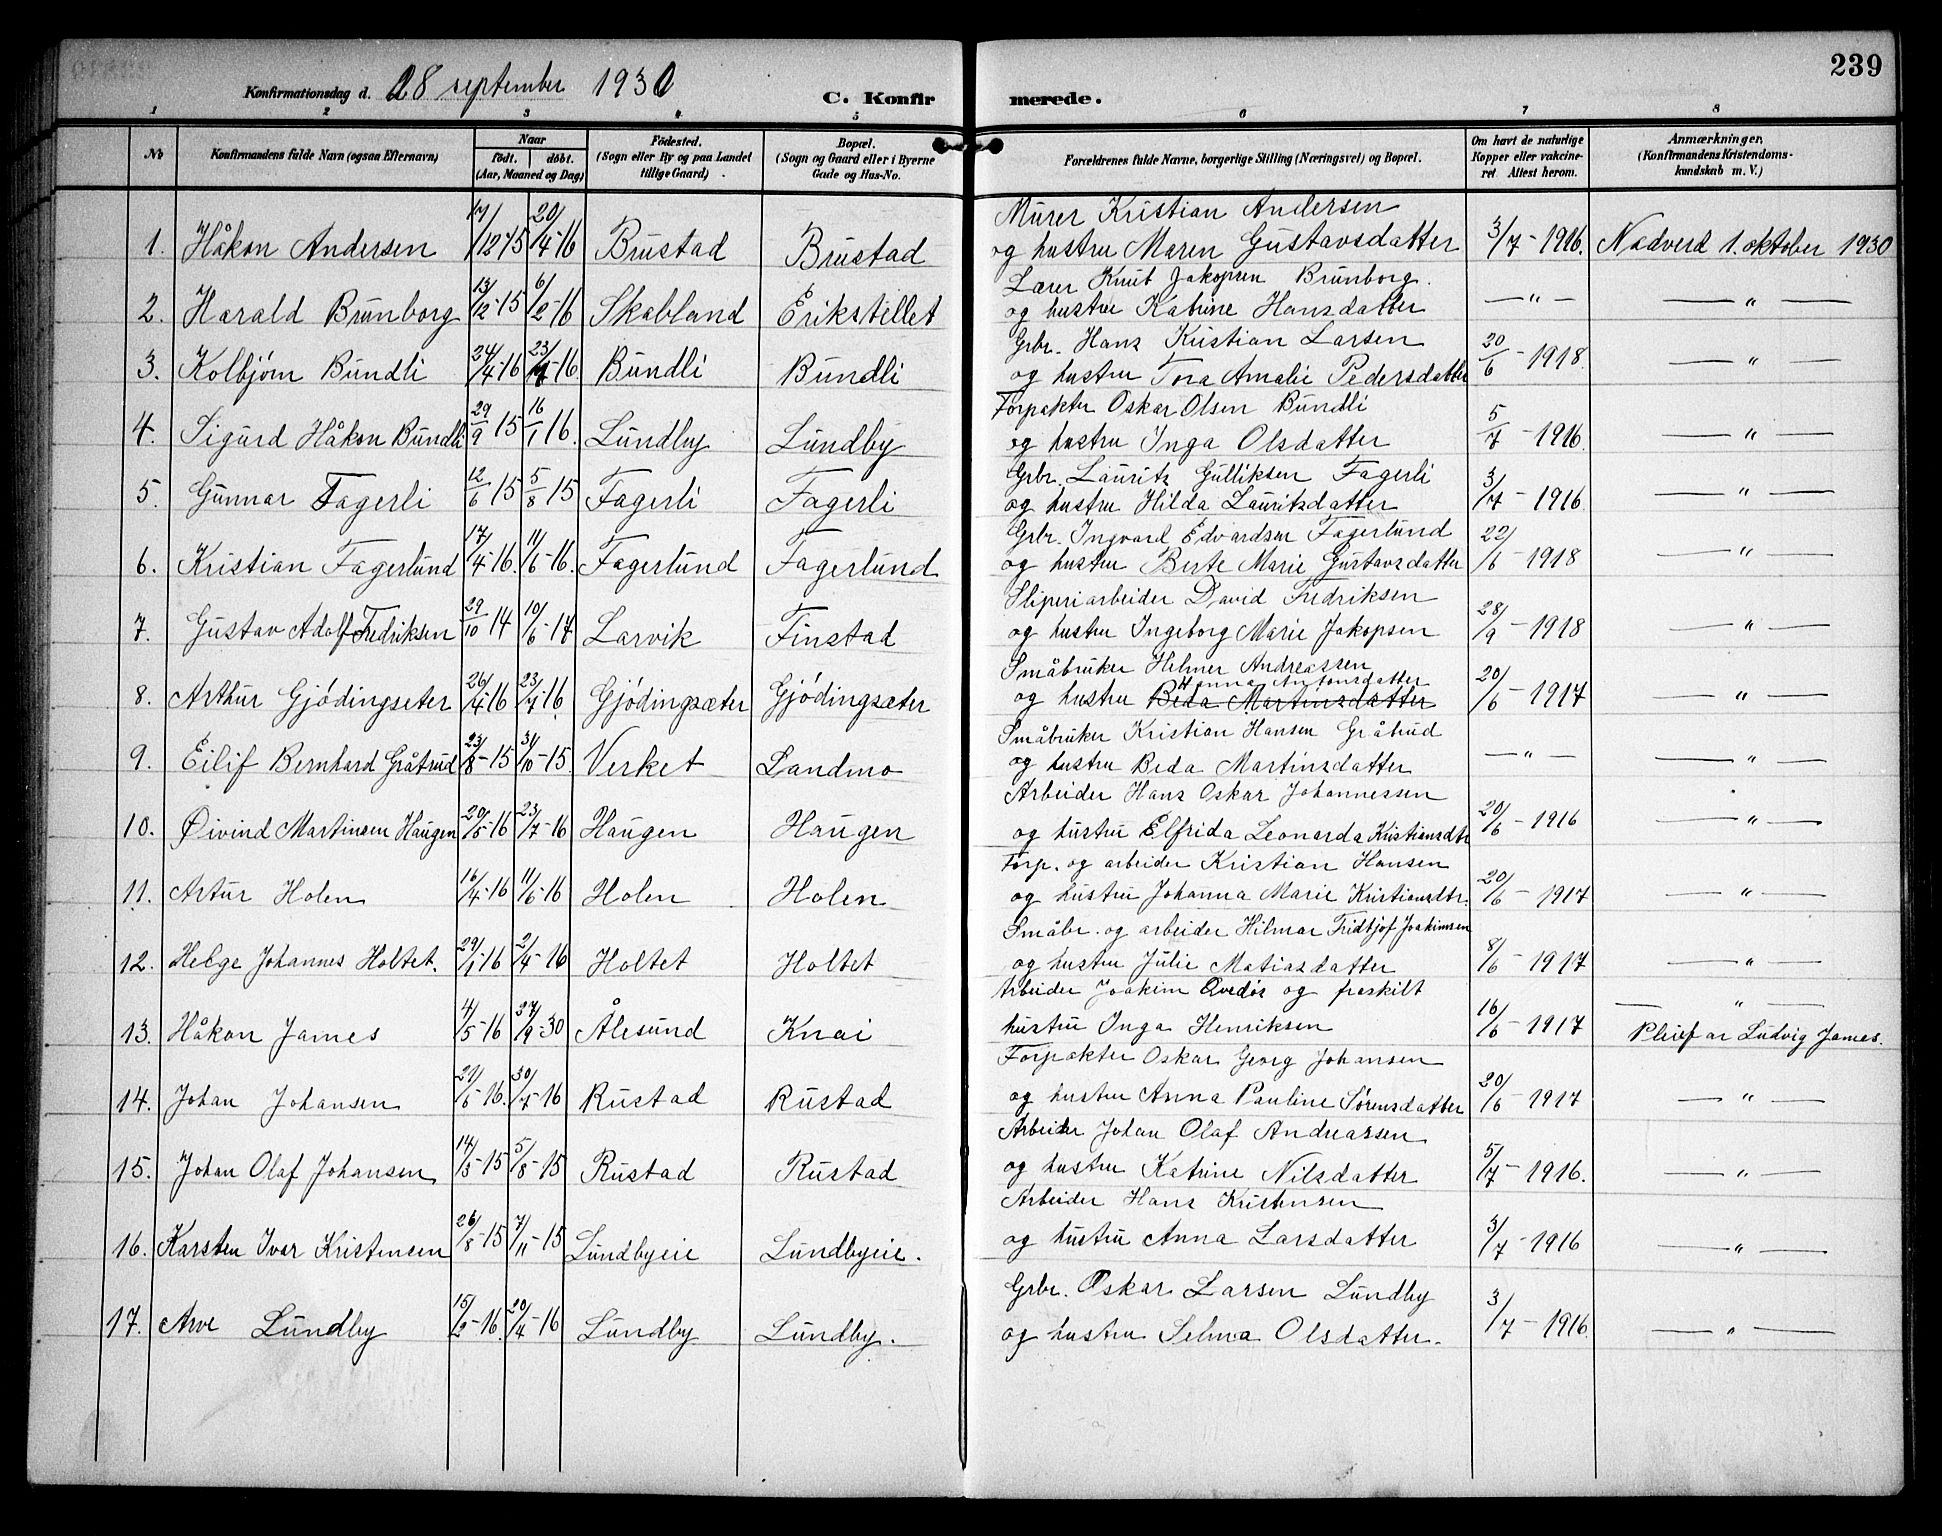 239
Konfirmationsdag d. 28 september 1930
C. Konfirmerede.
1 2 3 4 5 6 7 8
No
Konfirmandens fulde Navn (ogsaa Efternavn)
Naar
født. døbt.
(Aar, Maaned og Dag)
Fødested.
(Sogn eller By og paa Landet tillige Gaard)
Bopæl.
(Sogn og Gaard eller i Byerne Gade og Hus-No.
Forældrenes fulde Navne, borgerlige Stilling (Næringsvei) og Bopæl.
Om havt de naturlige Kopper eller vakcineret. Attest herom.
Anmærkninger,
(Konfirmandens Kristendomskundskab m. V.)
Murer Kristian Andersen
1. Håkon Andersen 17/12-15 20/4-16 Brustad Brustad og hustru Maren Gustavsdatter 3/7-1916. Nadverd 1. oktober 1930
Lærer Knut Jakopsen Brunborg.
2. Harald Brunborg 13/12-15 6/2-16 Skabland Erikstellet og hustru Katrine Hansdatter —"— —"—
Grbr. Hans Kristian Larsen
3. Kolbjørn Bundli 24/4-16 23/7-16. Bundli Bundli og hustru Tora Amalie Pedersdatter 20/6-1918. —"—
Forpakter Oskar Olsen Bundli
4. Sigurd Håkon Bundli 29/9 15 16/1 16. Lundby Lundby og hustru Inga Olsdatter 5/7-1916. —"—
Grbr. Lauritz Gulliksen Fagerli
5. Gunnar Fagerli 12/6-15 5/8 15 Fagerli Fagerli og hustru Hilda Lauritsdatter 3/7-1916. —"—
Grbr. Ingvard Edvardsen Fagerlund
6. Kristian Fagerlund 17/4-16. 11/6-16. Fagerlund Fagerlund og hustru Berte Marie Gustavsdatter 22/6-1918 —"—
Sliperiarbeider David Fredriksen
7. Gustav Adolf Fredriksen 29/10 14 10/6-17 Larvik Finstad og hustru Ingeborg Marie Jakopsen 28/9-1918 —"—
Småbruker Helmer Andreassen
Hanna Antonsdatter
8. Arthur Gjødingseter 26/4 16 23/7-16. Gjødingsæter Gjødingsæter og hustru Beda Martinsdatter 20/6-1917 —"—
Småbruker Kristian Hansen Gråtrud
9. Eilif Bernhard Gråtrud 23/8-15 31/10-15. Verket Landmo og hustru Beda Martinsdatter —"— —"—
Arbeider Hans Oskar Johannessen
10. Øivind Martinsen Haugen 20/5-16 23/7-16 Haugen Haugen og hustru Elfrida Leonarda Kristiansdtr 20/6-1916 —"—
Forp. og arbeider Kristian Hansen
11. Artur Holen 16/4-16 11/6-16 Holen Holen og hustru Johanna Marie Kristiansdtr. 20/6-1917 —"—
Småbr. og arbeider Hilmar Fridtjof Joakimsen
12. Helge Johannes Holtet. 29/1-16 2/4-16 Holtet Holtet og hustru Julie Matiasdatter 8/6-1917 —"—
Arbeider Joakim og fraskilt
13. Håkon James 4/5-16 27/9-30 Ålesund Knai hustru Inga Henriksen 16/6-1917 —"—
Pleief av Ludvig James.
Forpakter Oskar Georg Johansen
14. Johan Johansen 21/5-16. 30/7-16 Rustad Rustad og hustru Anna Pauline Sørensdatter 20/6-1917 —"—
Arbeider Johan Olaf Andreassen
15. Johan Olaf Johansen 14/5-15 5/8-15 Rustad Rustad og hustru Katrine Nilsdatter 5/7-1916. —"—
Arbeider Hans Kristensen
16. Karsten Ivar Kristensen 26/8-15 7/11-15 Lundbyeie Lundbyeie. og hustru Anna Larsdatter 3/7-1916 —"—
Grbr. Oskar Larsen Lundby
17. Arve Lundby 15/2-16. 20/4-16 Lundby Lundby. og hustru Selma Olsdatter. 3/7-1916. —"—